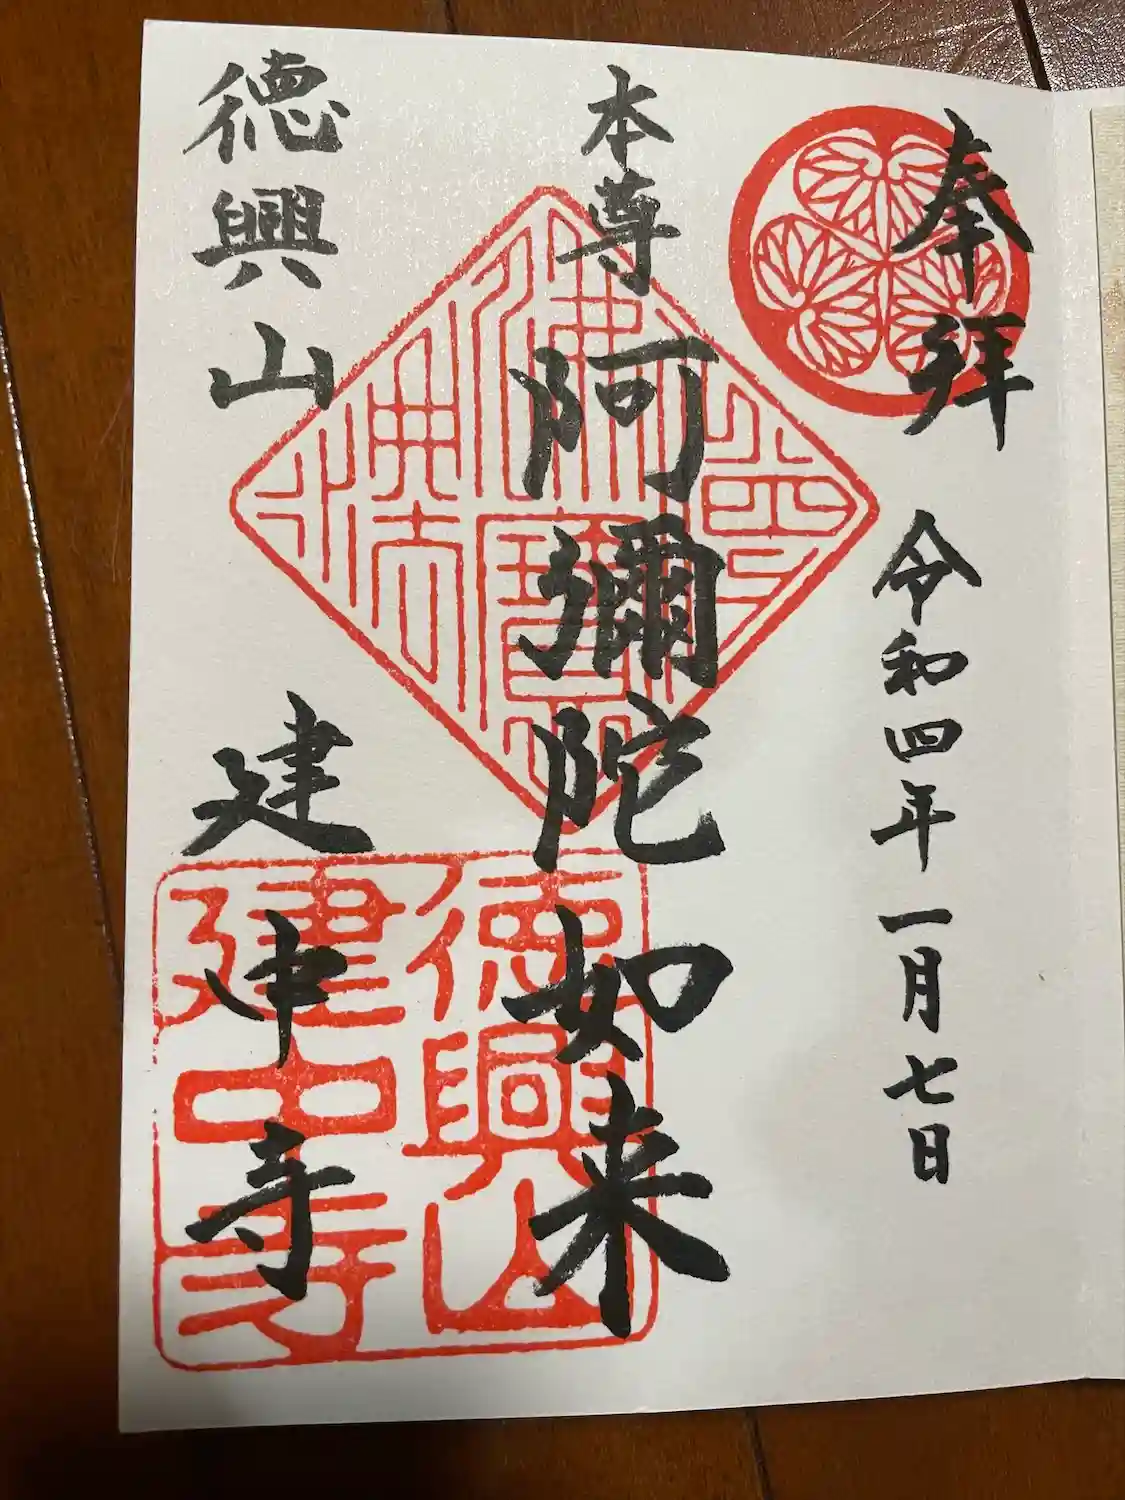 奉拜 令和四年一月七日
本尊 阿彌陀如来
德興山 建中寺
佛法僧寶
德興山
建中寺